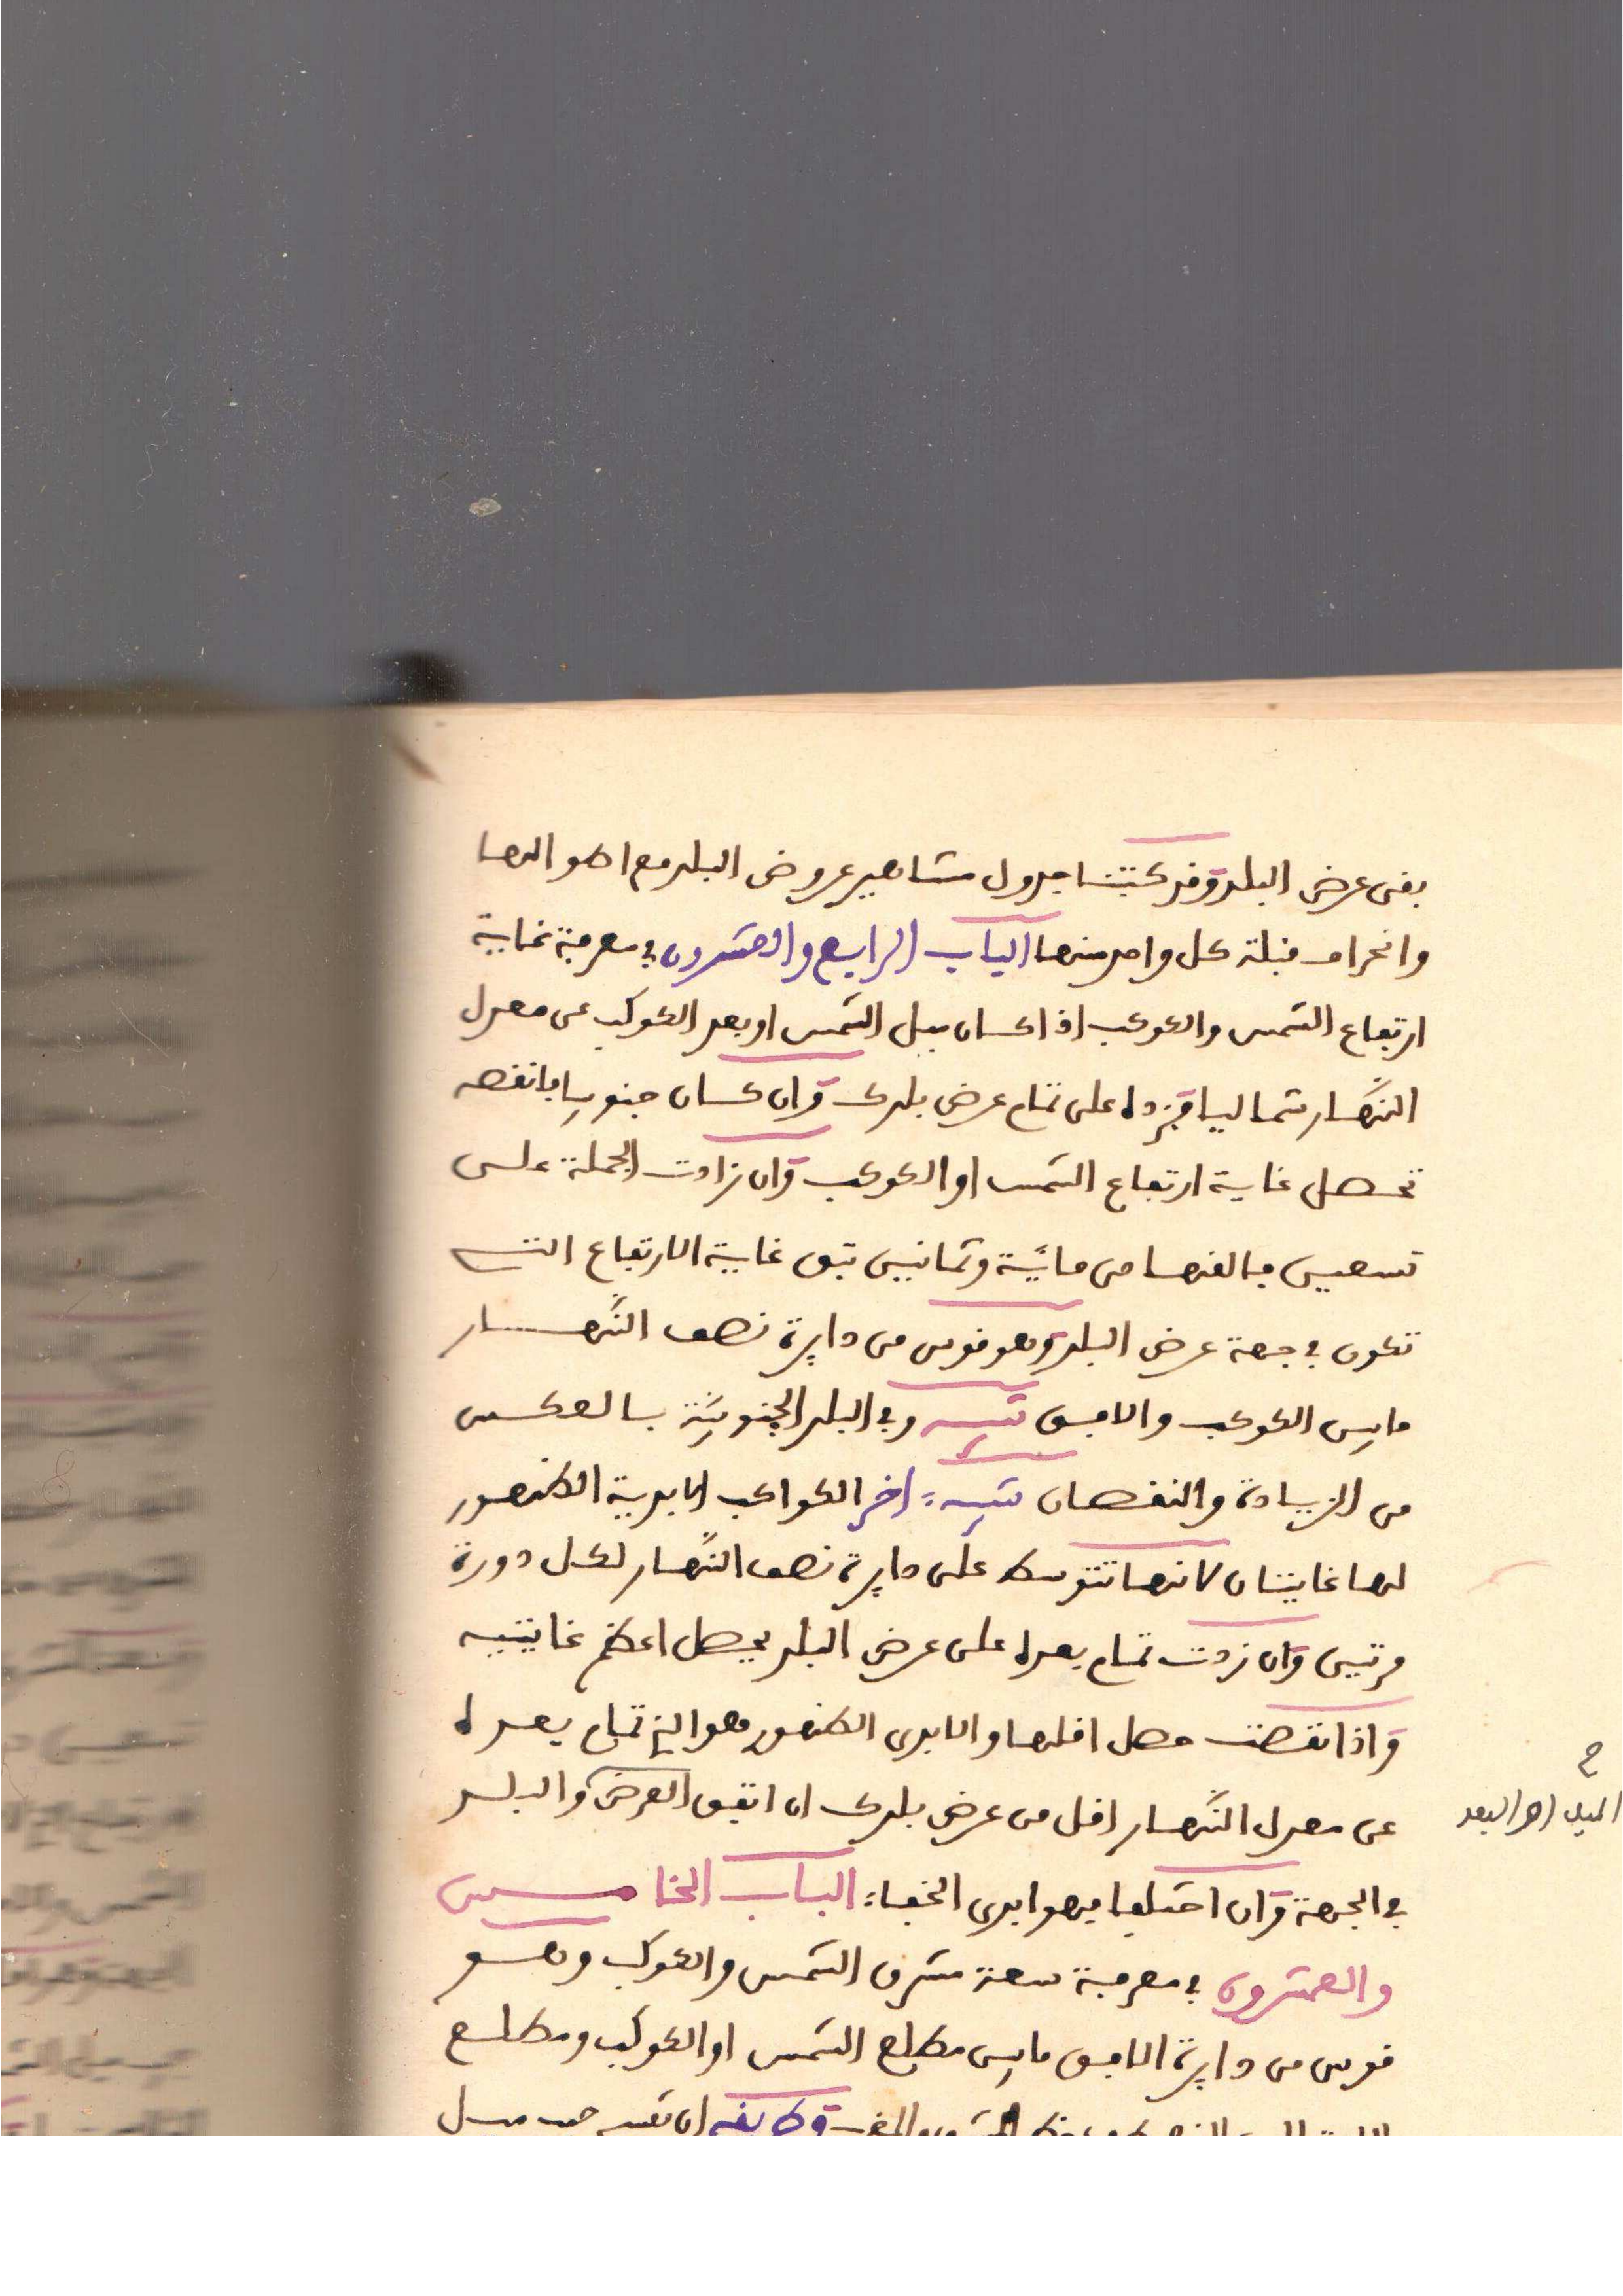 بقى عرض البلد وقد كتبنا جدول مشاهير عروض البلد مع اطوالها
وانحراف قبلة كل واحد منها الباب الرابع والعشرون في معرفة غاية
ارتفاع الشمس والكوكب اذا كان ميل الشمس او بعد الكوكب عن معدل
النهار شماليا فزده على تمام عرض بلدك وان كان جنوبيا فانقصه
تحصل غاية ارتفاع الشمس او الكوكب وان زادت الجملة على
تسعين فالقها من مائية وثمانيين تبق غاية الارتفاع التى
تكون في جهة عرض البلد وهو قوس من دايرة نصف النهار
مابين الكوكب والافق تنبيه وفي البلد الجنوبية بالعكس
من الزيادة والنقصان تنبيه اخر الكواكب الابدية الظهور
لها غايتان لانها تتوسط على دايرة نصف النهار لكل دورة
مرتين وان زدت تمام بعده على عرض البلد يحصل اعظم غايتيه
واذا نقصت حصل اقلها والابدى الظهور هو الذي تمام بعده
عن معدل النهار اقل من عرض بلدك ان اتفق العرض والبلد
في الجهة وان اختلفا فهو ابدى الخفاء الباب الخامس
والعشرون في معرفة سعة مشرق الشمس والكوكب وهو
قوس من دايرة الافق مابين مطلع الشمس او الكوكب ومطلع
وطريقه ان تقسم جيب ميل
ح
الميل اهـ البعد